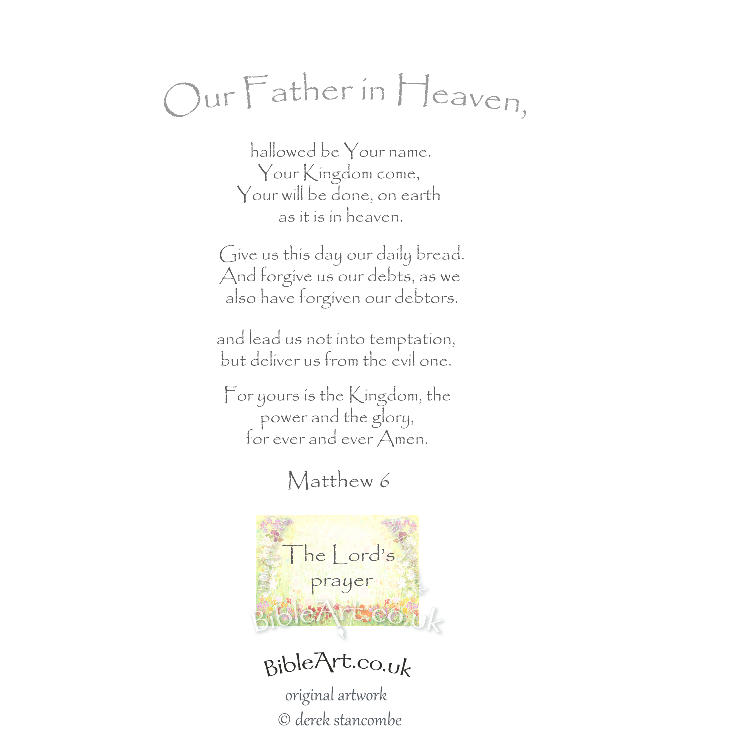 Our Father in Heaven,
hallowed be Your name.
Your Kingdom come,
Your will be done, on earth
as it is in heaven.
Give us this day our daily bread.
And forgive us our debts, as we
also have forgiven our debtors.
and lead us not into temptation,
but deliver us from the evil one.
For yours is the Kingdom, the
power and the glory,
for ever and ever Amen.
Matthew 6
The Lord's
prayer
BibleArt.co.uk
BibleArt.co.uk
original artwork
© derek stancombe